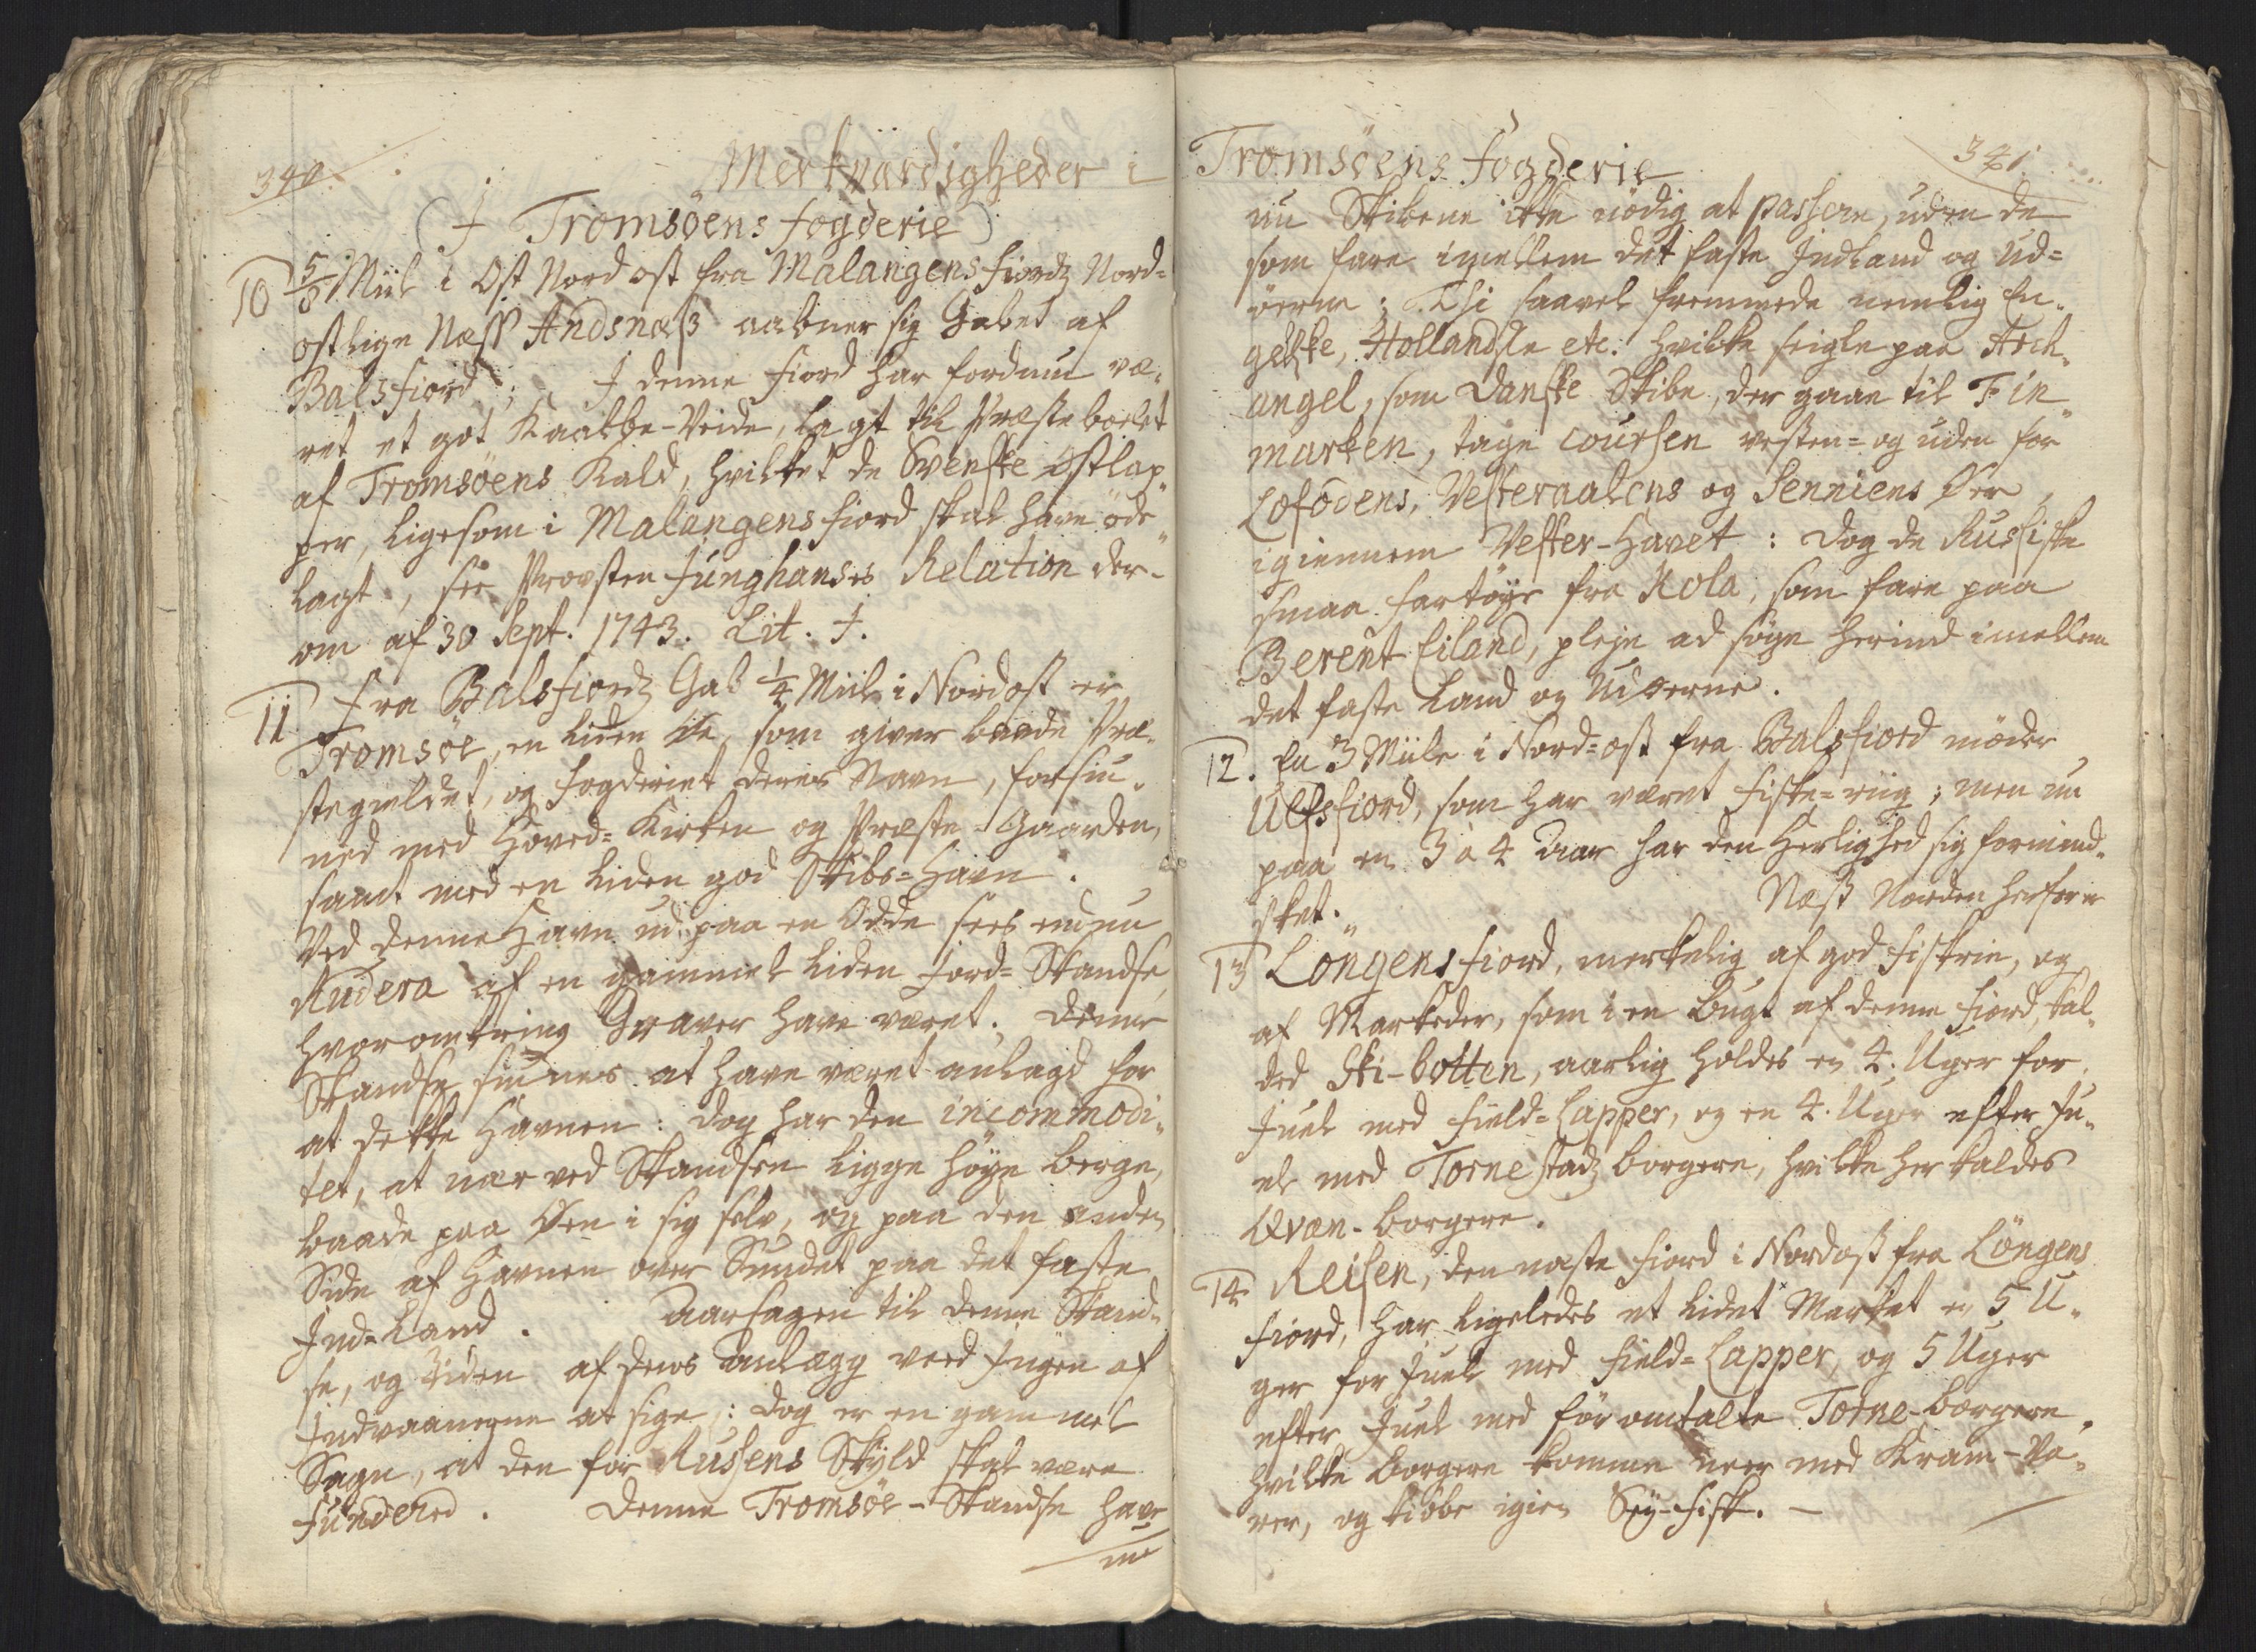 340.
Merkværdigheder i
(I Tromsöens fogderie)
10 5/8 Miil i Ost Nordost fra Malangens fiordz Nord-
ostlige Næss Andsnæss aabner sig Gabet af
Balsfiord; I denne fiord har fordum væ-
ret et got Kaabbe-Veide, lagt til Præsteboelet
af Tromsöens Kald, hvilket de Svenske Ostlap-
per, ligesom i Malangens fiord skal have öde-
lagt, see Provsten Junghanses Relation der-
om af 30 Sept. 1743. Lit. J.
11 Fra Balsfiordz Gab 1/4 Miil i Nordost er
Tromsöe, en liden Øe, som giver baade Præ-
stegieldet, og fogderiet deres Navn, forsiu-
ned med Hoved-Kirken og Præste-Gaarden,
samt med en liden god Skibs-Havn.
Ved denne Havn ud paa en Odde sees endnu
Rudera af en gammel liden Jord-Skandse,
hvoromkring Graver have været. Denne
Skandse siunes at have været anlagd for
at dekke Havnen: dog har den incommodi-
tet, at nær ved Skandsen ligge höye berge,
baade paa Øen i sig selv, og paa den anden
Side af Havnen over Sundet paa det faste
Ind-Land. Aarsagen til denne Skand-
se, og Tiden af dens anlegg veed Ingen af
Indvaanerne at sige: dog er en gammel
Sagn, at den for Russens Skyld skal være
funderet. Denne Tromsöe-Skandse have
nu
341.
Tromsöens fogderie
nu Skibene ikke nödig at passere, uden de
som fare imellem det faste Indland og Ud-
öerne: Thi saavel fremmede nemlig En-
gelske, Hollandske etc. hvilke seigle paa Arch-
angel, som Danske Skibe, der gaae til Fin-
marken, tage Coursen vesten- og uden for
Lofödens, Vesteraalens og Senniens Øer,
igiennem Vester-Havet: Dog de Russiske
smaa fartöyer fra Kola, som fare paa
Berent Eiland, pleje ad söge herind imellem
det faste Land og Udöerne.
12. En 3 Miile i Nord-ost fra Balsfiord möder
Ulfsfiord, som har været fiske-riig; men nu
paa en 3 à 4 Aar har den Herlighed sig formind-
sket. Næst Norden herfor er
13 Löngens fiord, merkelig af god fiskerie, og
af Markeder, som i en Bugt af denne fiord, kal-
ded Ski-botten, aarlig holdes en 4. Uger for
Juel med field-Lapper, og en 4. Uger efter Ju-
el med Torne stadz borgere, hvilke her kaldes
Qvæn-borgere.
14 Reisen, den næste fiord i Nordost fra Löngens
fiord, har ligeledes et lidet Market en 5 U-
ger for Juel med field-Lapper, og 5 Uger
efter Juel med för omtalte Torne-borgere,
hvilke borgere komme neer med Kram-Va-
rer, og kiöbe igien Sey-fisk.